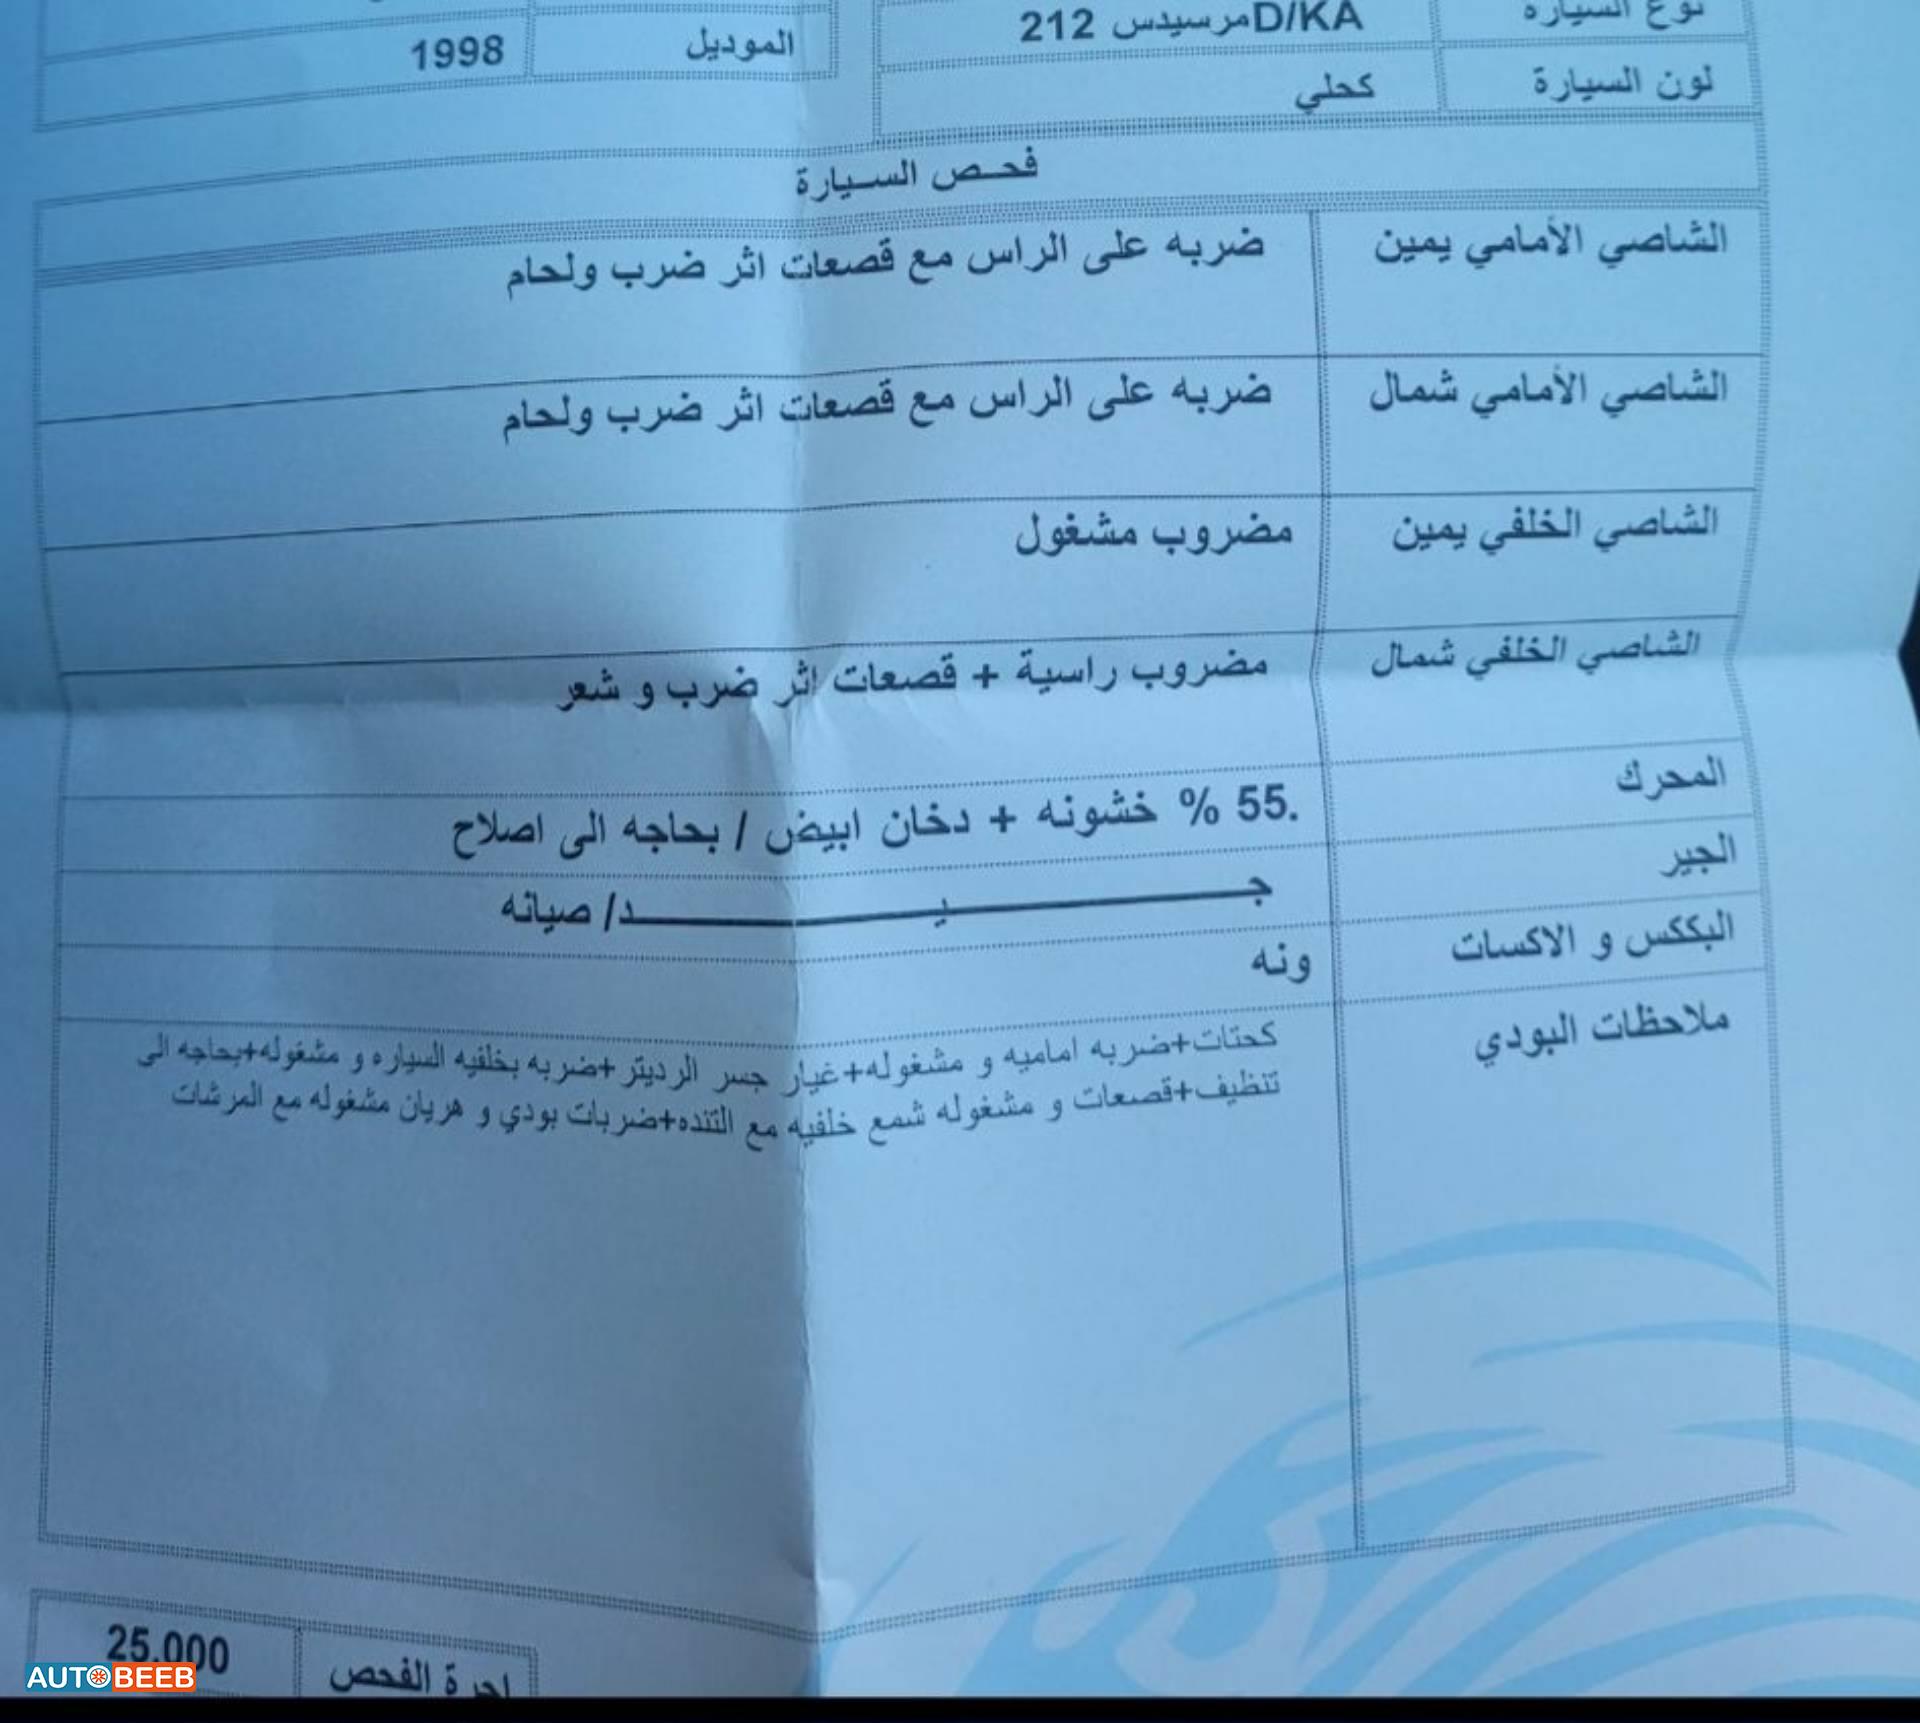 نوع السياره
212 مرسيدس D/KA
الموديل
1998
لون السيارة
كحلي
فحـص السـيارة
الشاصي الأمامي يمين
ضربه على الراس مع قصعات اثر ضرب ولحام
الشاصي الأمامي شمال
ضربه على الراس مع قصعات اثر ضرب ولحام
الشاصي الخلفي يمين
مضروب مشغول
الشاصي الخلفي شمال
مضروب راسية + قصعات اثر ضرب و شعر
المحرك
.55 % خشونه + دخان ابيض / بحاجه الى اصلاح
الجير
جـــــــــيـــــــــد/ صيانه
البككس و الاكسات
ونه
ملاحظات البودي
كحتات+ضربه اماميه و مشغوله+غيار جسر الرديتر+ضربه بخلفيه السياره و مشغوله+بحاجه الى
تنظيف+قصعات و مشغوله شمع خلفيه مع التنده+ضربات بودي و هريان مشغوله مع المرشات
اجرة الفحص
25.000
AUTOBEEB